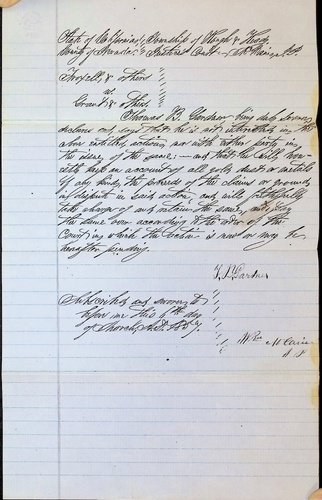 State of California, Township of Rough & Ready
County of Nevada, Justices Court -
Foxall & others
vs
Grant & others
Thomas B. Gardner being duly sworn
declares and says that he is not interested in the
above entitled action, nor with either party in
the issue of the same: - and that he will
keep an account of all gold dust or metals
of any kind, the proceeds of the claims or grounds
in dispute in said action, and will faithfully
take charge of and retain the same, and pay
the same over according to the order of the
Court in which the action is now or may be
hereafter pending.
Gardner
Subscribed and sworn to
before me this 6th day
of March, A.D. 1857.
Wm McCain
J.P.